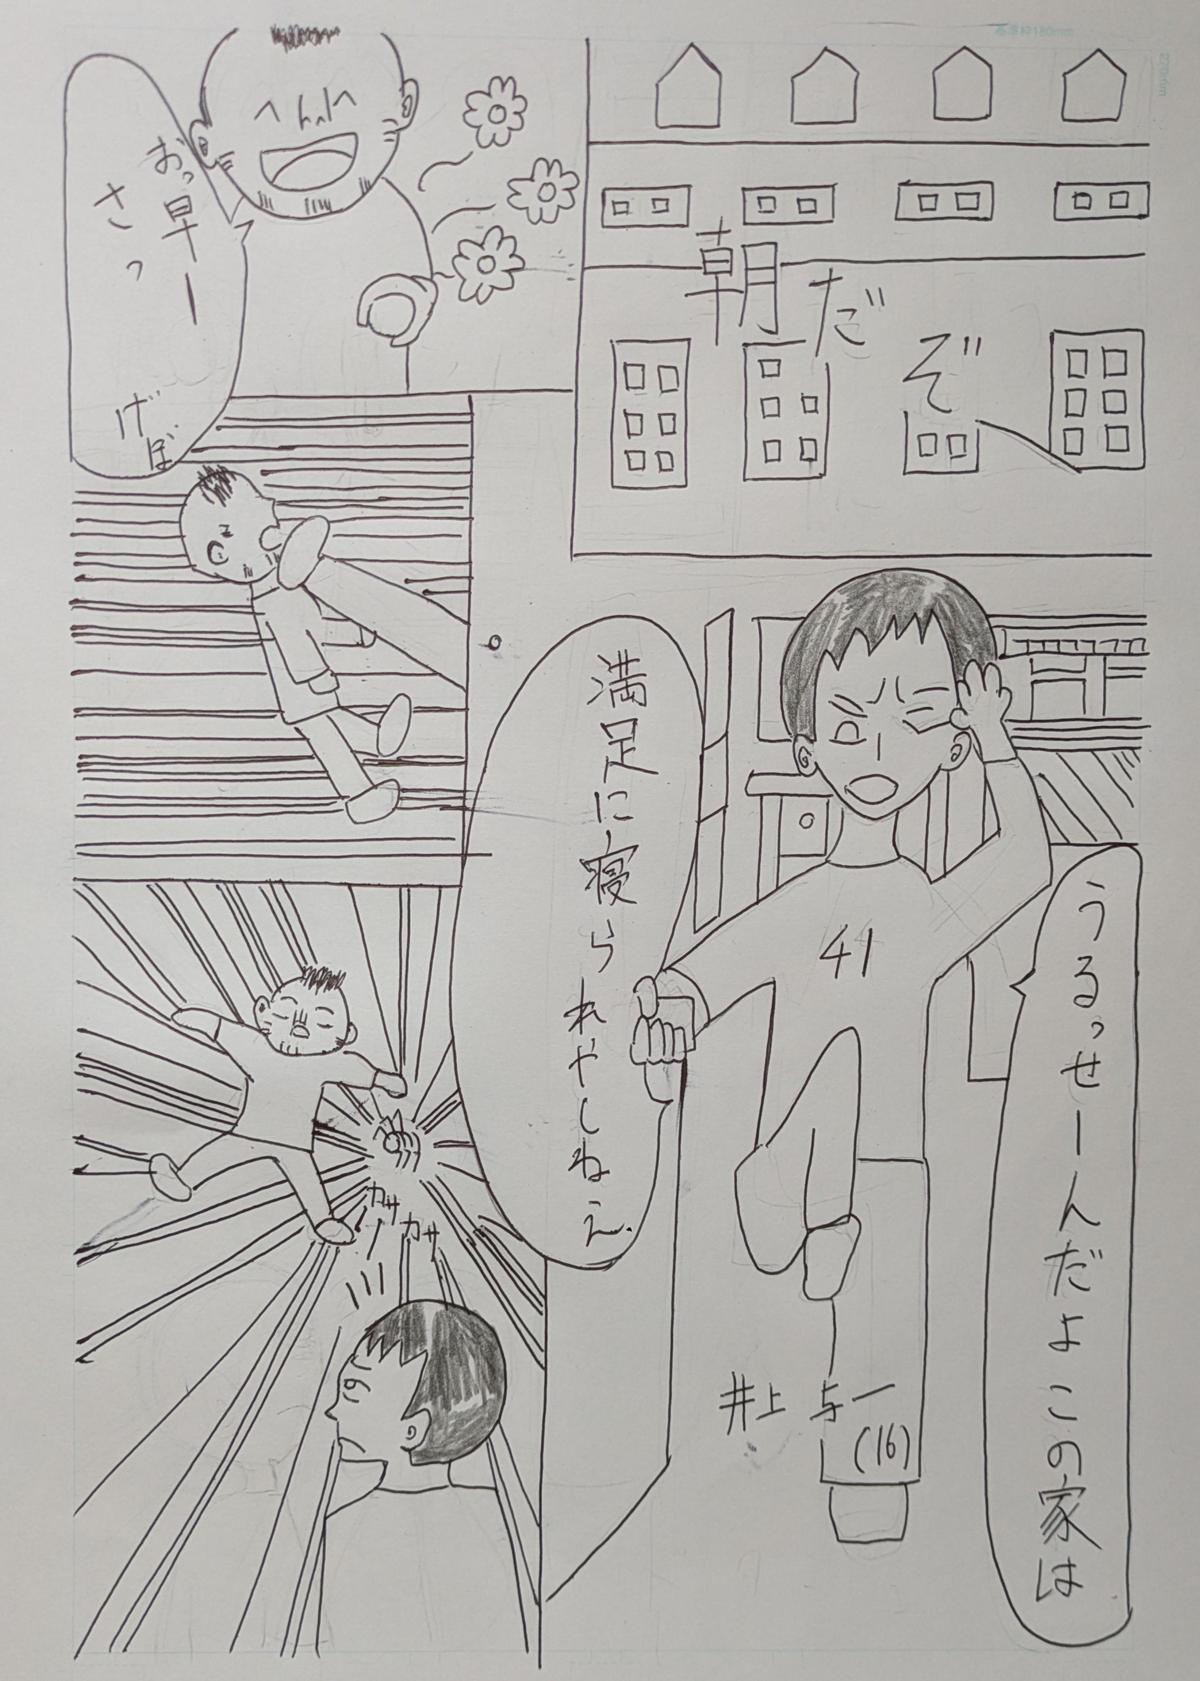 朝だぞ
うるっせーんだよこの家は
満足に寝られやしねえ
41
井上 与一
(16)
おっ早ー
さっ
げぼ
カサ
カサ